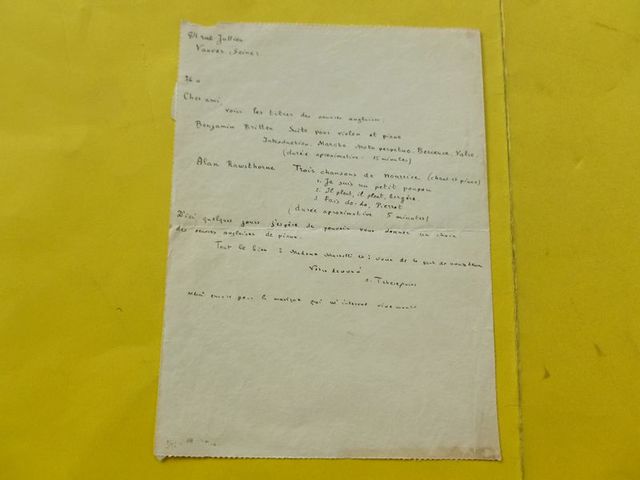 rue Jullien
Vanves, Seine
Cher ami,
voici les titres des oeuvres anglaises.
Benjamin Britten Suite pour violon et piano
Introduction, Marche Moto perpetuo, Berceuse, Valse.
(durée aproximative: 15 minutes)
Alan Rawsthorne Trois chansons de nourrice (chant et piano)
1. Je suis un petit poupon
2. Il pleut, il pleut, bergère
3. Fais do-do, Pierrot
(durée aproximative 5 minutes)
D'ici quelques jours j'espère de pouvoir vous donner un choix
des oeuvres anglaises de piano.
Tout le bien à Madame et à vous de la part de nous deux
Votre devoué
Tcherepnine
Merci encore pour la musique qui m'interesse vivement